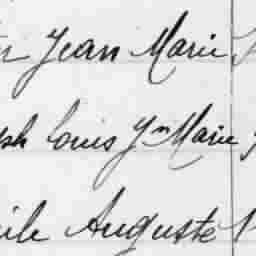 Jean Marie
Louis Yn Marie
Auguste